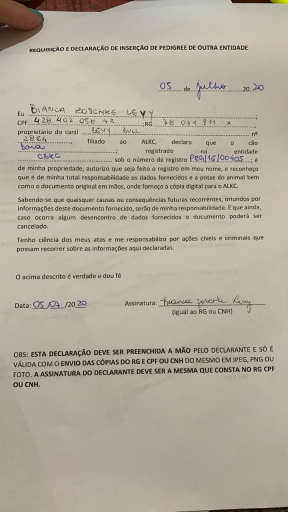 REQUISIÇÃO E DECLARAÇÃO DE INSERÇÃO DE PEDIGREE DE OUTRA ENTIDADE
05 de julho 20 20
Eu BIANCA ZORONKE LEVY
CPF 428 402 058 42 ;RG 38 071 811 x ,
proprietário do canil LEVY BULL nº
2864 , filiado ao ALKC, declaro que o cão
bona ; registrado na entidade
CBKC sob o número de registro PRG/16/00405 ; é
de minha propriedade, autorizo que seja feito o registro em meu nome, e reconheço
que é de minha total responsabilidade os dados fornecidos e a posse do animal bem
como o documento original em mãos, onde forneço a cópia digital para o ALKC.
Sabendo-se que quaisquer causas ou consequências futuras recorrentes, oriundos por
informações deste documento fornecido, serão de minha responsabilidade. E que ainda,
caso ocorra algum desencontro de dados fornecidos o documento poderá ser
cancelado.
Tenho ciência dos meus atos e me responsabilizo por ações cíveis e criminais que
possam recorrer sobre as informações aqui declaradas.
O acima descrito é verdade e dou fé
Data: 05/07/2020 Assinatura: Levy
(Igual ao RG ou CNH)
OBS: ESTA DECLARAÇÃO DEVE SER PREENCHIDA A MÃO PELO DECLARANTE E SÓ É
VÁLIDA COM O ENVIO DAS CÓPIAS DO RG E CPF OU CNH DO MESMO EM JPEG, PNG OU
FOTO. A ASSINATURA DO DECLARANTE DEVE SER A MESMA QUE CONSTA NO RG CPF
OU CNH.